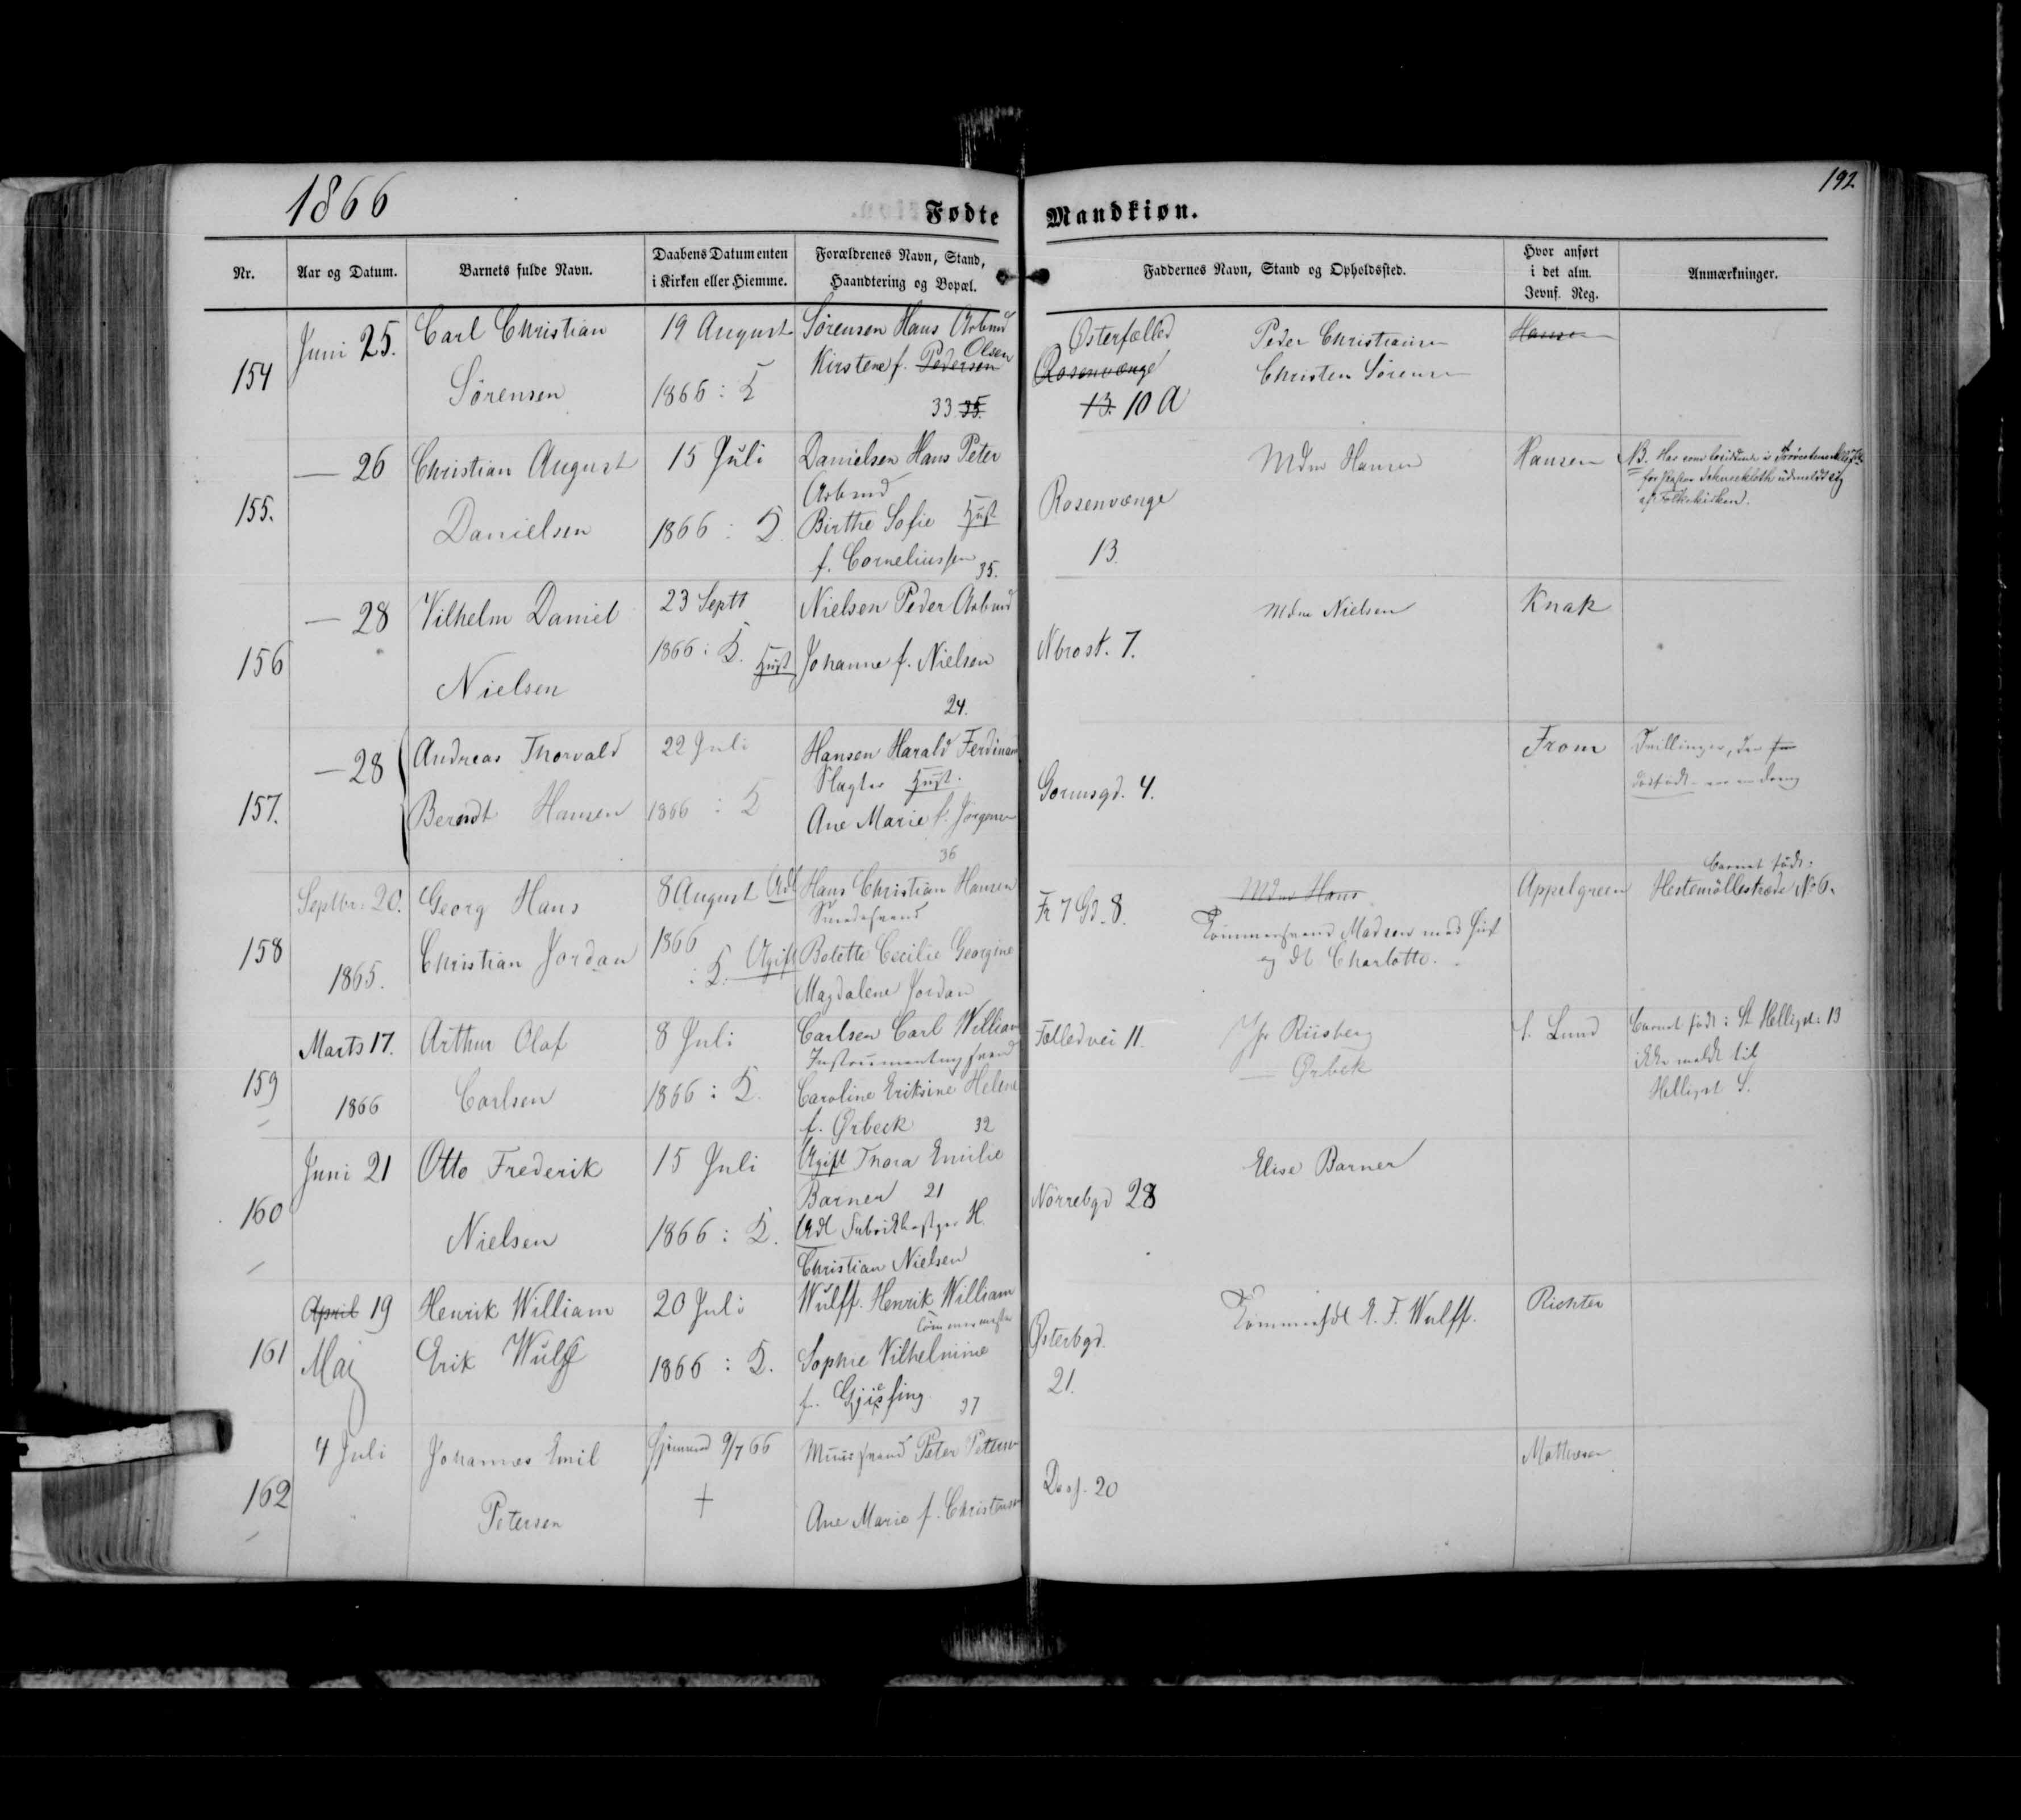 1866
192
Fødte Mandkiøn.
Nr.
Aar og Datum.
Barnets fulde Navn.
Daabens Datum enten
i Kirken eller Hiemme.
Forældrenes Navn, Stand,
Haandtering og Bopæl.
Faddernes Navn, Stand og Opholdssted.
Hvor anført
i det alm.
Jevnf. Reg.
Anmærkninger.
154
Juni 25.
Carl Christian
Sørensen
19 August
1866 : K
Sørensen Hans Arbmd
Olsen
Kirstene f. Pedersen
33 35.
Østerfælled
Rosenvænge
13. 10 A
Peder Christiansen
Christen Sørensen
Hansen
155.
— 26
Christian August
Danielsen
15 Juli
1866 : K
Danielsen Hans Peter
Arbmd
Birthe Sofie Hust
f. Corneliussen
35.
Rosenvænge
13.
Mdm Hansen
Hansen
NB. Har som
for Pastor udmeldt sig
af Folkekirken.
156
— 28
Vilhelm Daniel
Nielsen
23 Septr
1866 : K. Hust
Nielsen Peder Arbmd
Johanne f. Nielsen
24.
Nbrost. 7.
Mdm Nielsen
Knak
157.
— 28
Andreas Thorvald
Berndt Hansen
22 Juli
1866 : K
Hansen Harald Ferdinand
Slagter Hust.
Ane Marie f. Jørgensen
36
Gormsgd. 4.
From
Tvillinger, den
dødfødt var en Dreng
158
Septbr. 20.
1865.
Georg Hans
Christian Jordan
8 August Udl
1866
: K. Ugift
Hans Christian Hansen
Smedesvend
Botette Cecilie Georgine
Magdalene Jordan
Fr 7 Gd. 8.
Mdm Hans
Tømmersvend Madsen med Hust
og dt Charlotte.
Appelgreen
Barnet født:
Hestemøllestræde No 6.
159
Marts 17.
1866
Arthur Olaf
Carlsen
8 Juli
1866 : K.
Carlsen Carl William
Instrumentmsvend
Caroline Eriksine Helene
f. Ørbeck 32
Fælledvei 11.
Jfr Riisberg
— Ørbek
S. Lund
Barnet født: St Helligst. 13
ikke meldt til
Helligst S.
160
Juni 21
Otto Frederik
Nielsen
15 Juli
1866 : K.
Ugift Thora Emilie
Barner 21
Udl H.
Christian Nielsen
Nørrebgd 28
Elise Barner
161
April 19
Maj
Henrik William
Erik Wulff
20 Juli
1866 : K.
Wulff. Henrik William
Tømmermester
Sophie Vilhelmine
f. Gjessing
37
Østerbgd.
21.
E. F. Wulff.
Richter
162
4 Juli
Johannes Emil
Petersen
Hjemmed 9/7 66
+
Muursvend Peter Petersen
Ane Marie f. Christensen
Dosf. 20
Mathiesen